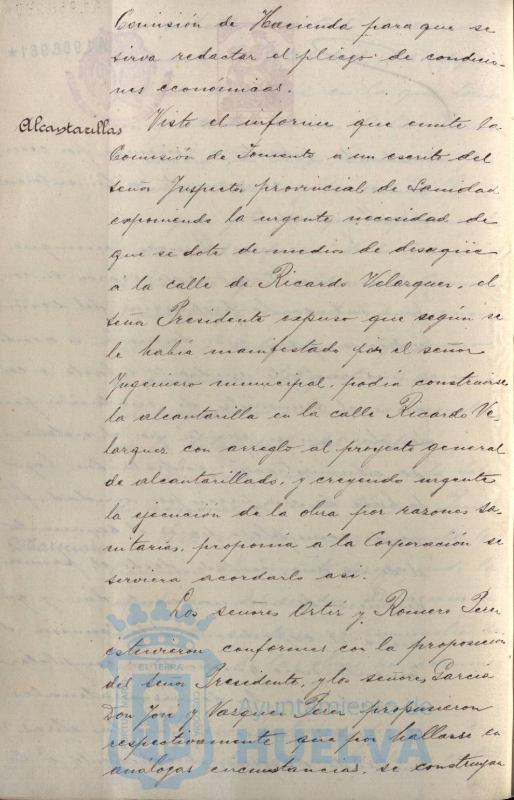 Comisión de Hacienda para que se
sirva redactar el pliego de condicio-
nes económicas.
Alcantarillas
Visto el informe que emite la
Comisión de Fomento á un escrito del
señor Inspector provincial de Sanidad
exponiendo la urgente necesidad de
que se dote de medios de desagüe
a la calle de Ricardo Velazquez, el
señor Presidente expuso que según se
le había manifestado por el señor
Ingeniero municipal, podía construirse
la alcantarilla en la calle Ricardo Ve-
lazquez con arreglo al proyecto general
de alcantarillado, y creyendo urgente
la ejecución de la obra por razones sa-
nitarias, proponía á la Corporación se
serviera acordarlo así.
Los señores Ortiz y Romero Perez
estuvieron conformes con la proposición
del señor Presidente, y los señores García
Don José y Vazquez Perez propusieron
respectivamente que por hallarse en
análogas circunstancias, se construyan
Ayuntamiento de
HUELVA